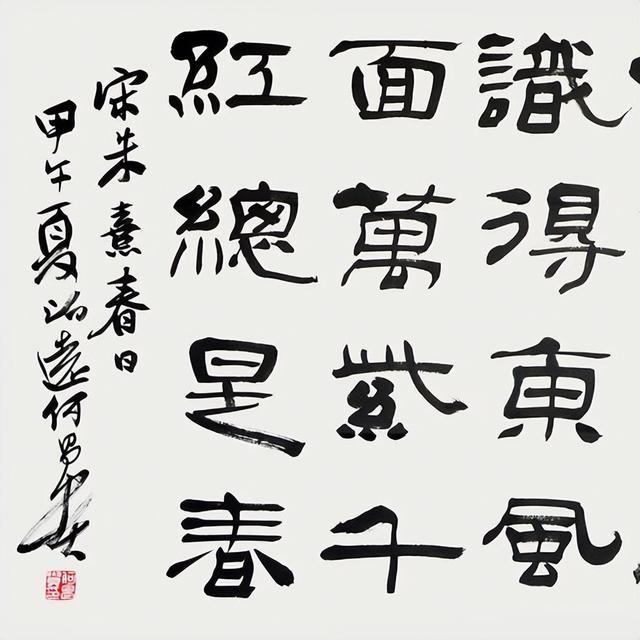 識得東風
面萬紫千
紅總是春
宋朱熹春日
甲午夏遠何